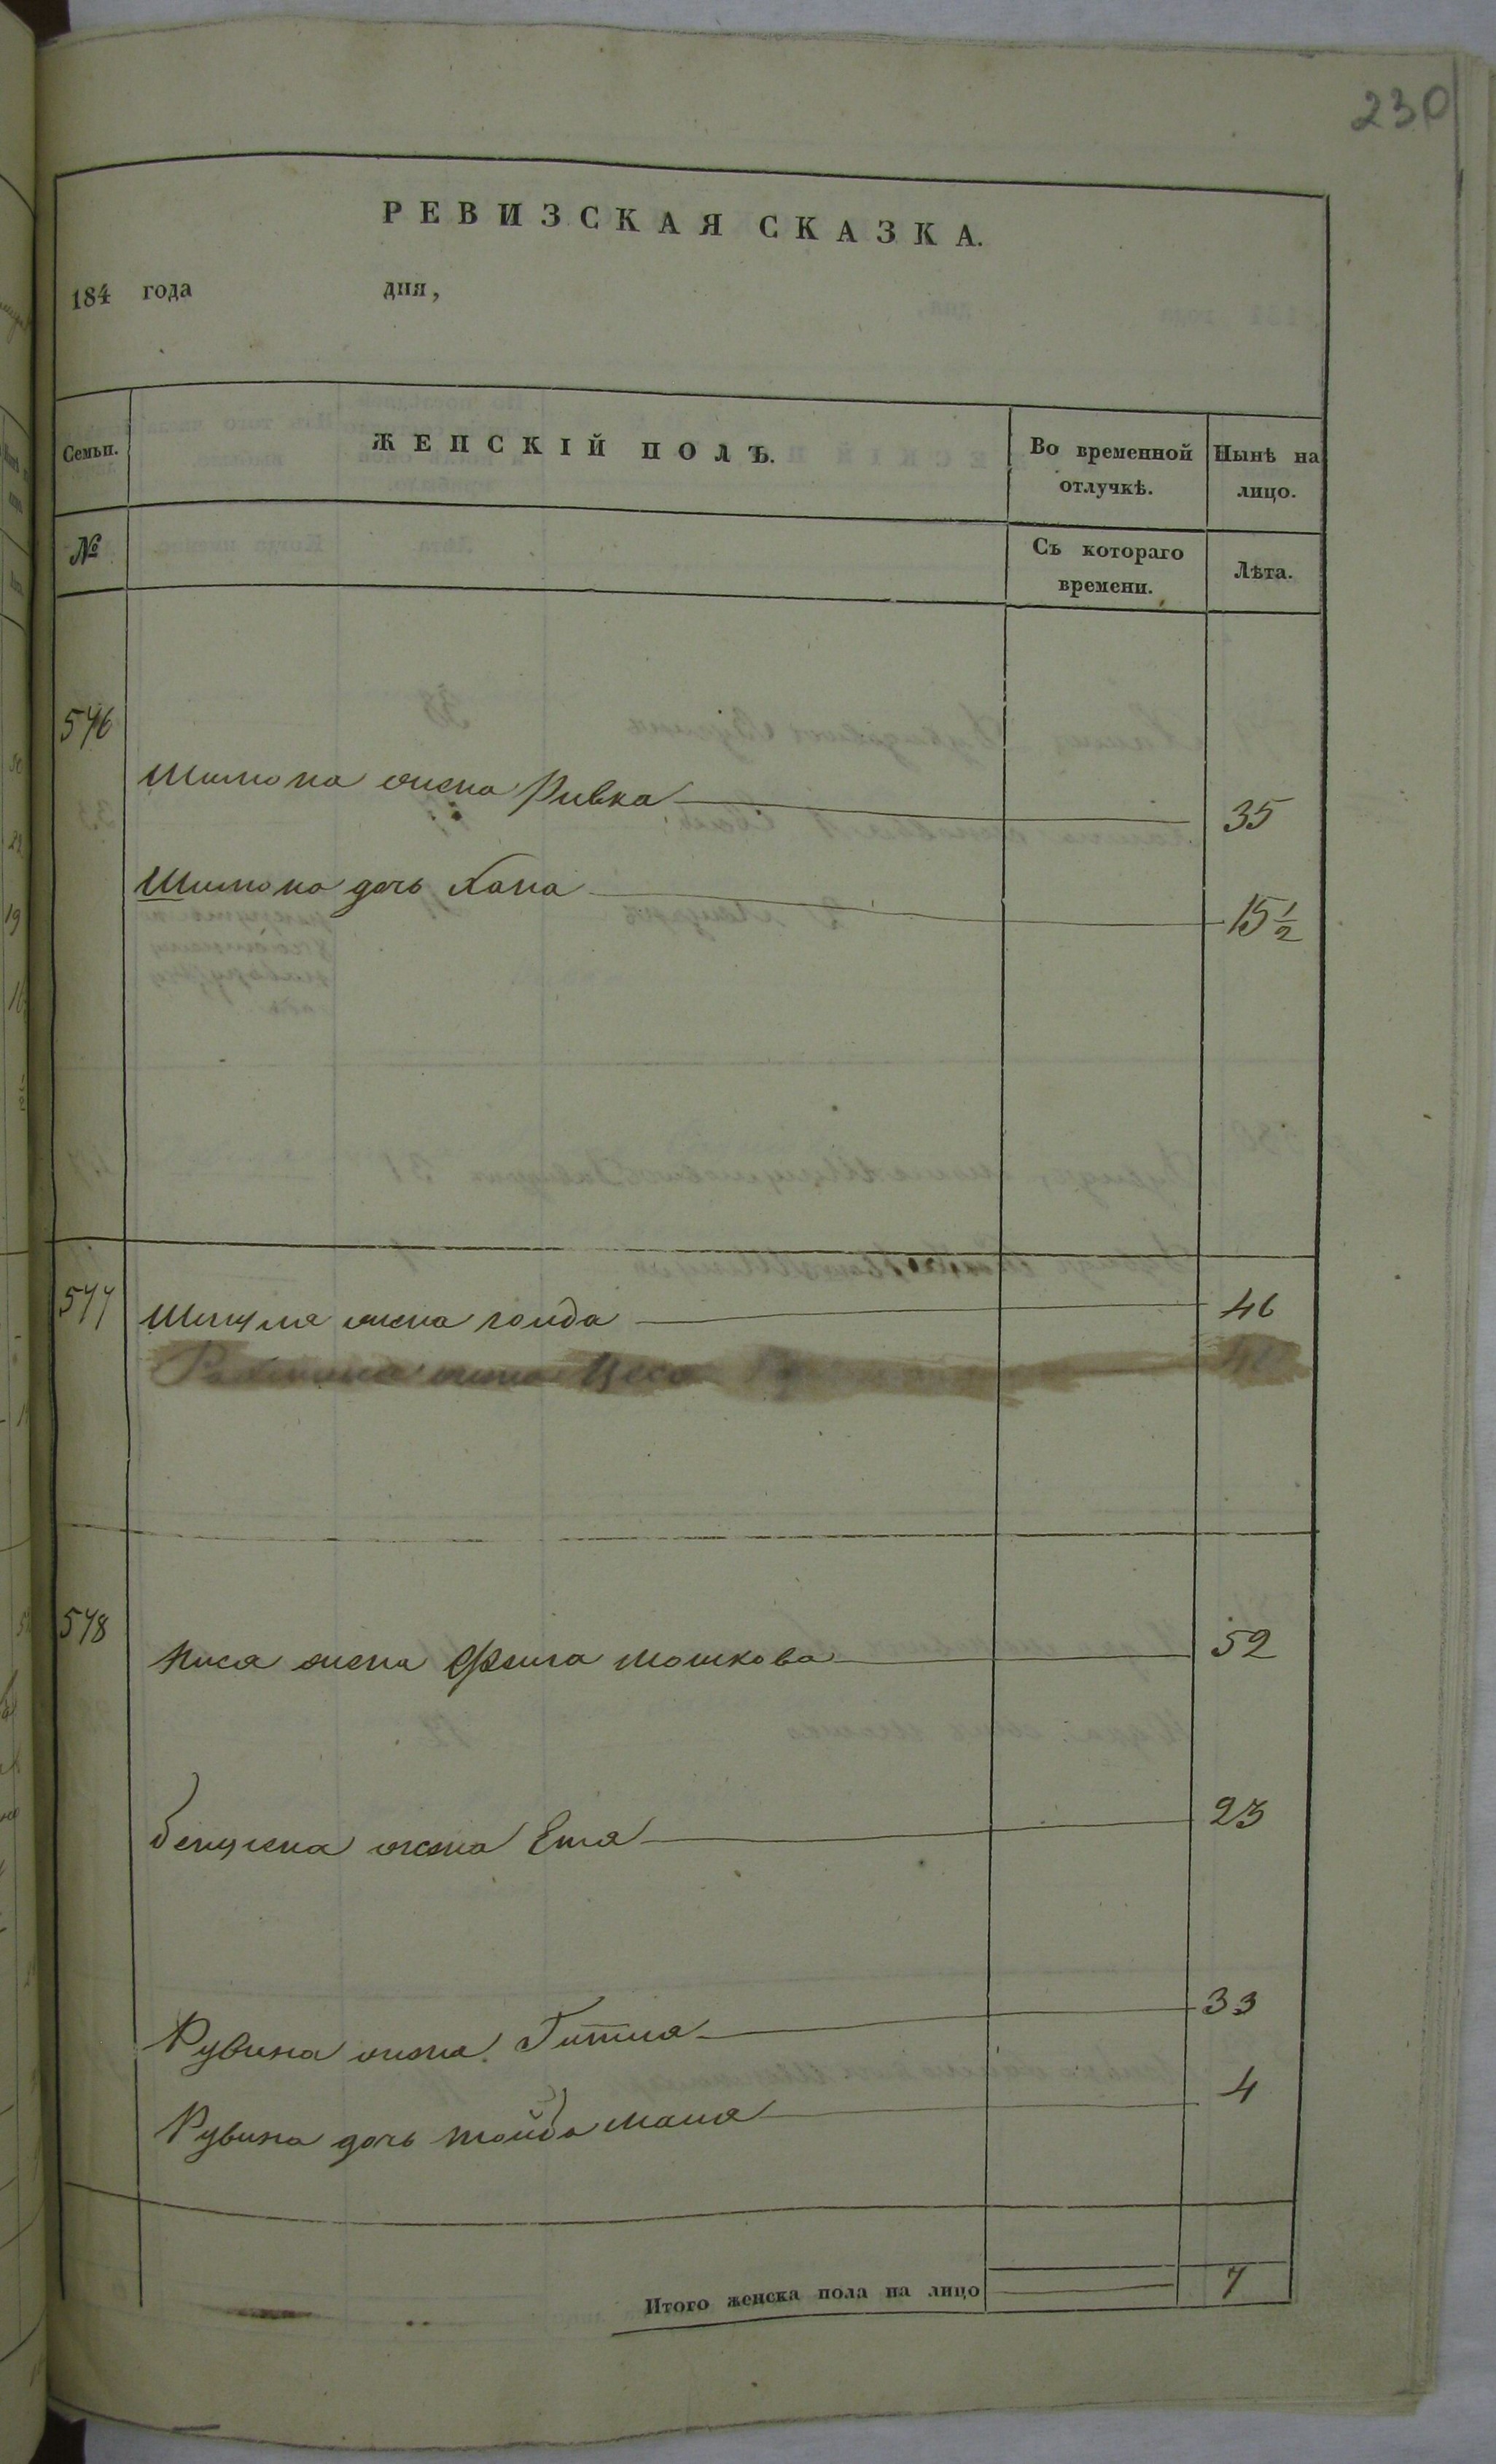 230
РЕВИЗСКАЯ СКАЗКА.
184 года дня,
Семьи. ЖЕНСКІЙ ПОЛЪ. Во временной отлучкѣ. Нынѣ на лицо.
№ Съ котораго времени. Лѣта.
576
Шимона жена Ривка 35
Шимона дочь Хана 15 1/2
577 Шмуля жена гольда 46
жена
578
жена Фейга мошкова 52
жена 23
Рувина жена Гитля 33
Рувина дочь 4
Итого женска пола на лицо 7